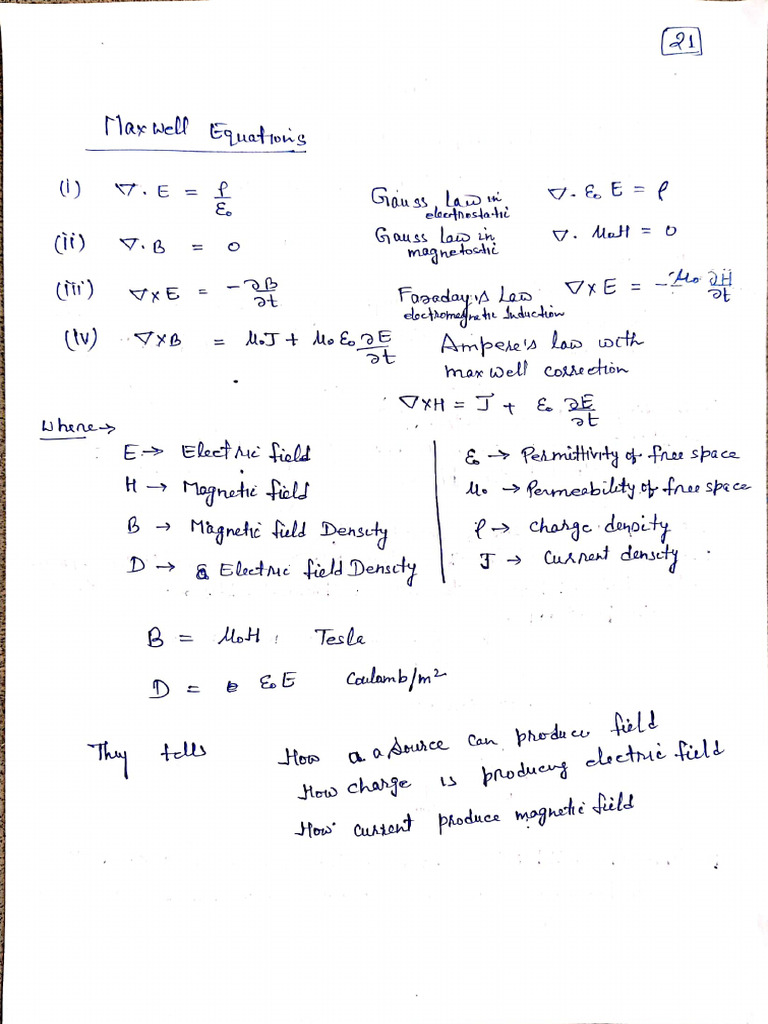 21
Maxwell Equations
(i) ∇. E = ρ/ε₀ Gauss Law in electrostatic ∇. ε₀ E = ρ
(ii) ∇. B = 0 Gauss Law in magnetostic ∇. μ₀H = 0
(iii) ∇×E = -∂B/∂t Faraday's Law electromegnetic Induction ∇×E = -μ₀ ∂H/∂t
(iv) ∇×B = μ₀J + μ₀ ε₀ ∂E/∂t Ampere's law with
maxwell correction
∇×H = J + ε₀ ∂E/∂t
Where→
E → Electric field
H → Magnetic field
B → Magnetic field Density
D → Electric field Density
ε₀ → Permittivity of free space
μ₀ → Permeability of free space
ρ → charge density
J → Current density
B = μ₀H Tesla
D = ε₀E Coulamb/m²
They tells How a source can produce field
How charge is producing electric field
How current produce magnetic field